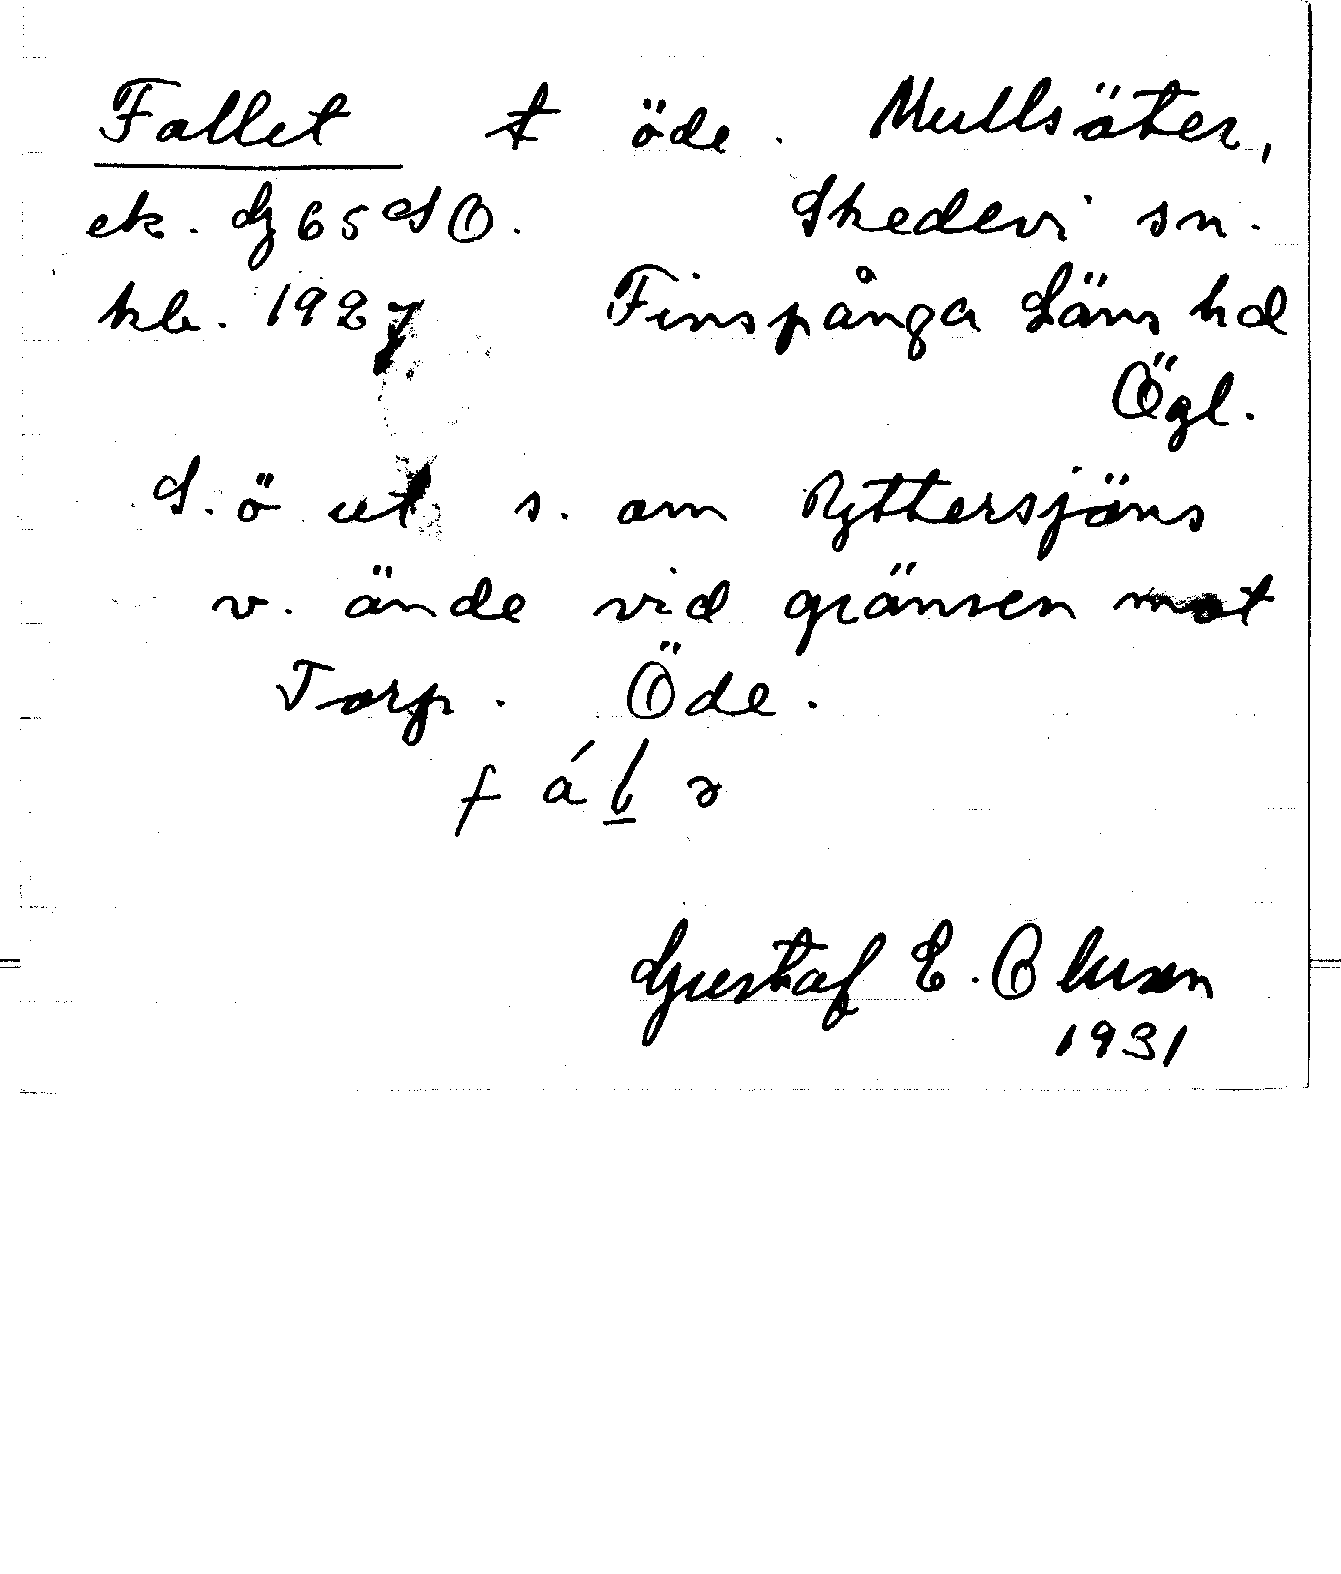 Fallet t öde. Mullsäter,
ek. G 65 SO. Skedevi sn.
kb. 1927 Finspånga Läns hd
Ögl.
S. ö ut s. om Ryttersjöns
v. ände vid gränsen mot
Torp. Öde.
Gustaf E. Olsson
1931